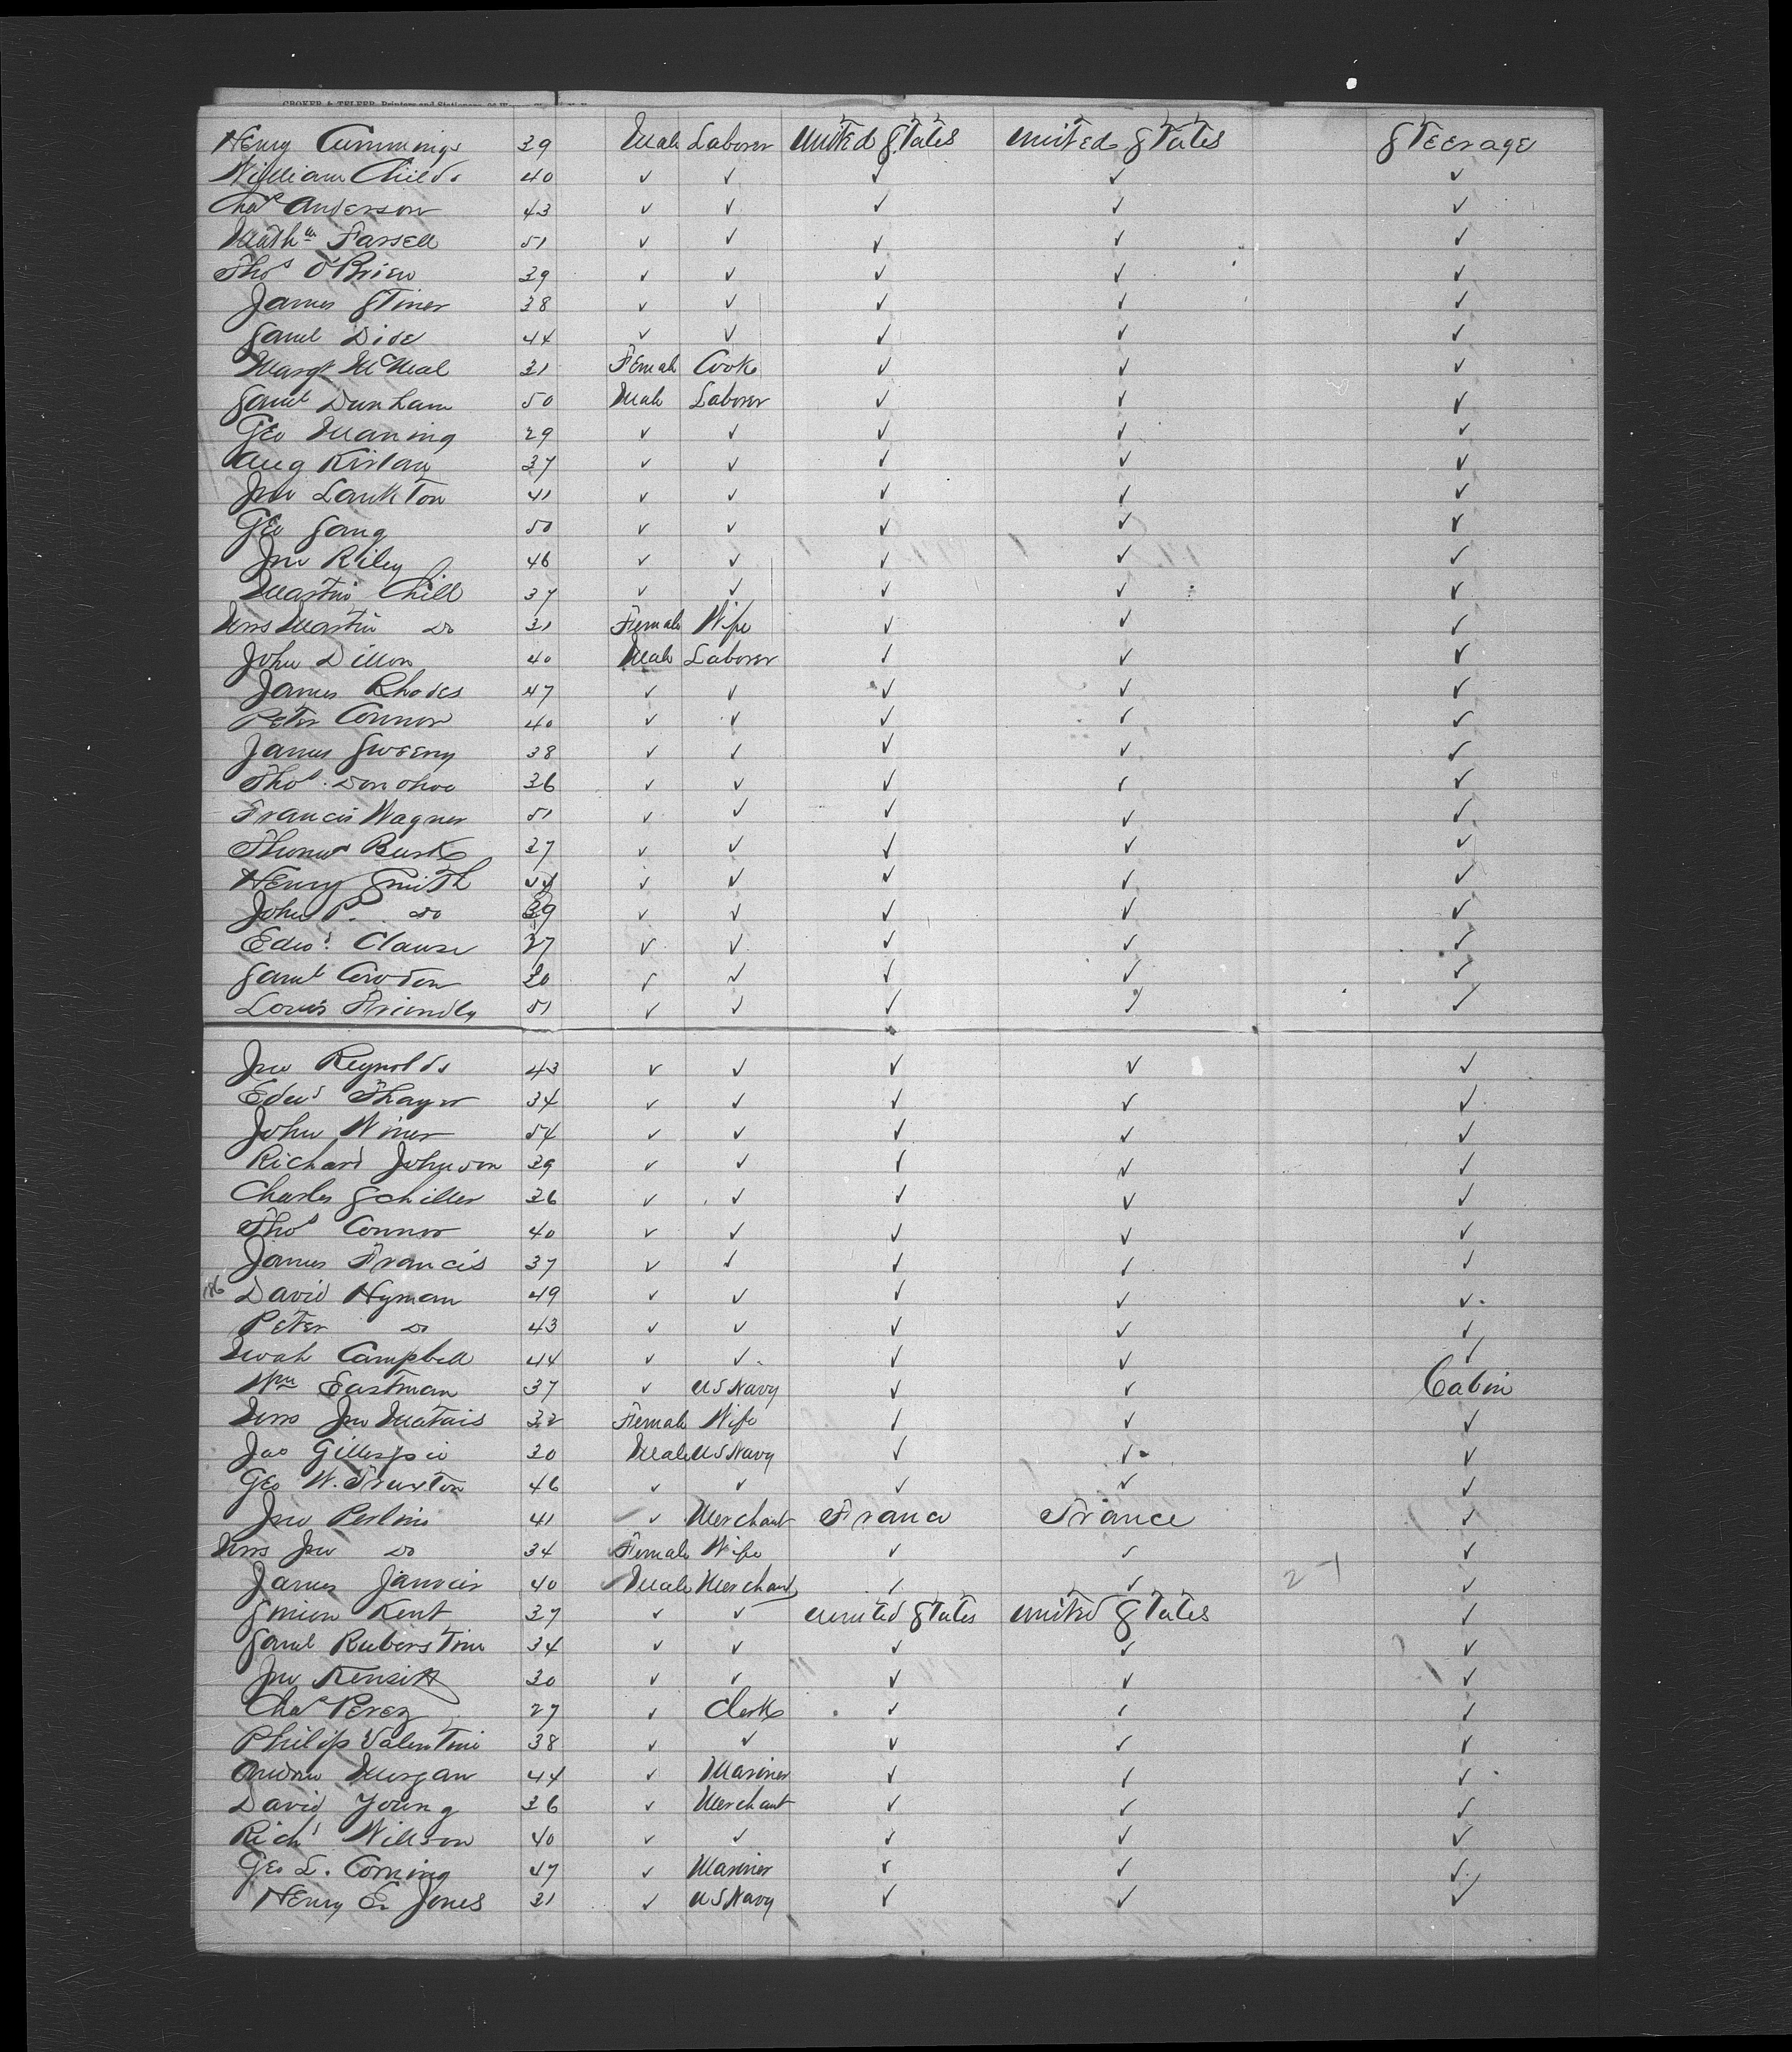 CROKER & TELFER, Printers and Stationers
Henry Cummings 39 Male Laborer United States United States Steerage
William Childs 40 ✓ ✓ ✓ ✓ ✓
Chas Anderson 43 ✓ ✓ ✓ ✓ ✓
Farrell 51 ✓ ✓ ✓ ✓ ✓
Thos O'Brien 39 ✓ ✓ ✓ ✓ ✓
James Stiner 38 ✓ ✓ ✓ ✓ ✓
Saml Dide 44 ✓ ✓ ✓ ✓ ✓
Margt McNeal 31 Female Cook ✓ ✓ ✓
Saml Dunham 50 Male Laborer ✓ ✓ ✓
Geo Maning 29 ✓ ✓ ✓ ✓ ✓
Aug 37 ✓ ✓ ✓ ✓ ✓
Jno Lankton 41 ✓ ✓ ✓ ✓ ✓
Geo Gang 50 ✓ ✓ ✓ ✓ ✓
Jno Riley 46 ✓ ✓ ✓ ✓ ✓
Martin Chill 37 ✓ ✓ ✓ ✓ ✓
Mrs Martin Do 31 Female Wife ✓ ✓ ✓
John Dillon 40 Male Laborer ✓ ✓ ✓
James Rhodes 47 ✓ ✓ ✓ ✓ ✓
Peter Connor 40 ✓ ✓ ✓ ✓ ✓
James Sweeny 38 ✓ ✓ ✓ ✓ ✓
Thos Donohoe 36 ✓ ✓ ✓ ✓ ✓
Francis Wagner 51 ✓ ✓ ✓ ✓ ✓
Thomas Burke 37 ✓ ✓ ✓ ✓ ✓
Henry Smith 44 ✓ ✓ ✓ ✓ ✓
John P. do 39 ✓ ✓ ✓ ✓ ✓
Edwd Clause 37 ✓ ✓ ✓ ✓ ✓
Saml Crodon 30 ✓ ✓ ✓ ✓ ✓
Louis Friendly 51 ✓ ✓ ✓ ✓ ✓
Jno Reynolds 43 ✓ ✓ ✓ ✓ ✓
Edwd Thayer 34 ✓ ✓ ✓ ✓ ✓
John Winer 54 ✓ ✓ ✓ ✓ ✓
Richard Johnson 39 ✓ ✓ ✓ ✓ ✓
Charles Schiller 36 ✓ ✓ ✓ ✓ ✓
Thos Connor 40 ✓ ✓ ✓ ✓ ✓
James Francis 37 ✓ ✓ ✓ ✓ ✓
David Hyman 49 ✓ ✓ ✓ ✓ ✓
Peter Do 43 ✓ ✓ ✓ ✓ ✓
Noah Campbell 44 ✓ ✓ ✓ ✓ ✓
Wm Eastman 37 ✓ US Navy ✓ ✓ Cabin
Mrs Jno Matais 32 Female Wife ✓ ✓ ✓
Jas Gillespie 30 Male US Navy ✓ ✓ ✓
Geo W. Truxton 46 ✓ ✓ ✓ ✓ ✓
Jno Perline 41 ✓ Merchant France France ✓
Mrs Jno Do 34 Female Wife ✓ ✓ ✓
James Janvier 40 Male Merchant ✓ ✓ ✓
Kent 37 ✓ ✓ United States United States ✓
Saml Ruberstine 34 ✓ ✓ ✓ ✓ ✓
Jno Kensitt 30 ✓ ✓ ✓ ✓ ✓
Chas Perez 27 ✓ Clerk ✓ ✓ ✓
Philip Valentine 38 ✓ ✓ ✓ ✓ ✓
Andrew Morgan 44 ✓ Mariner ✓ ✓ ✓
David Young 36 ✓ Merchant ✓ ✓ ✓
Richd Willson 40 ✓ ✓ ✓ ✓ ✓
Geo L. Corning 47 ✓ Mariner ✓ ✓ ✓
Henry E. Jones 31 ✓ US Navy ✓ ✓ ✓